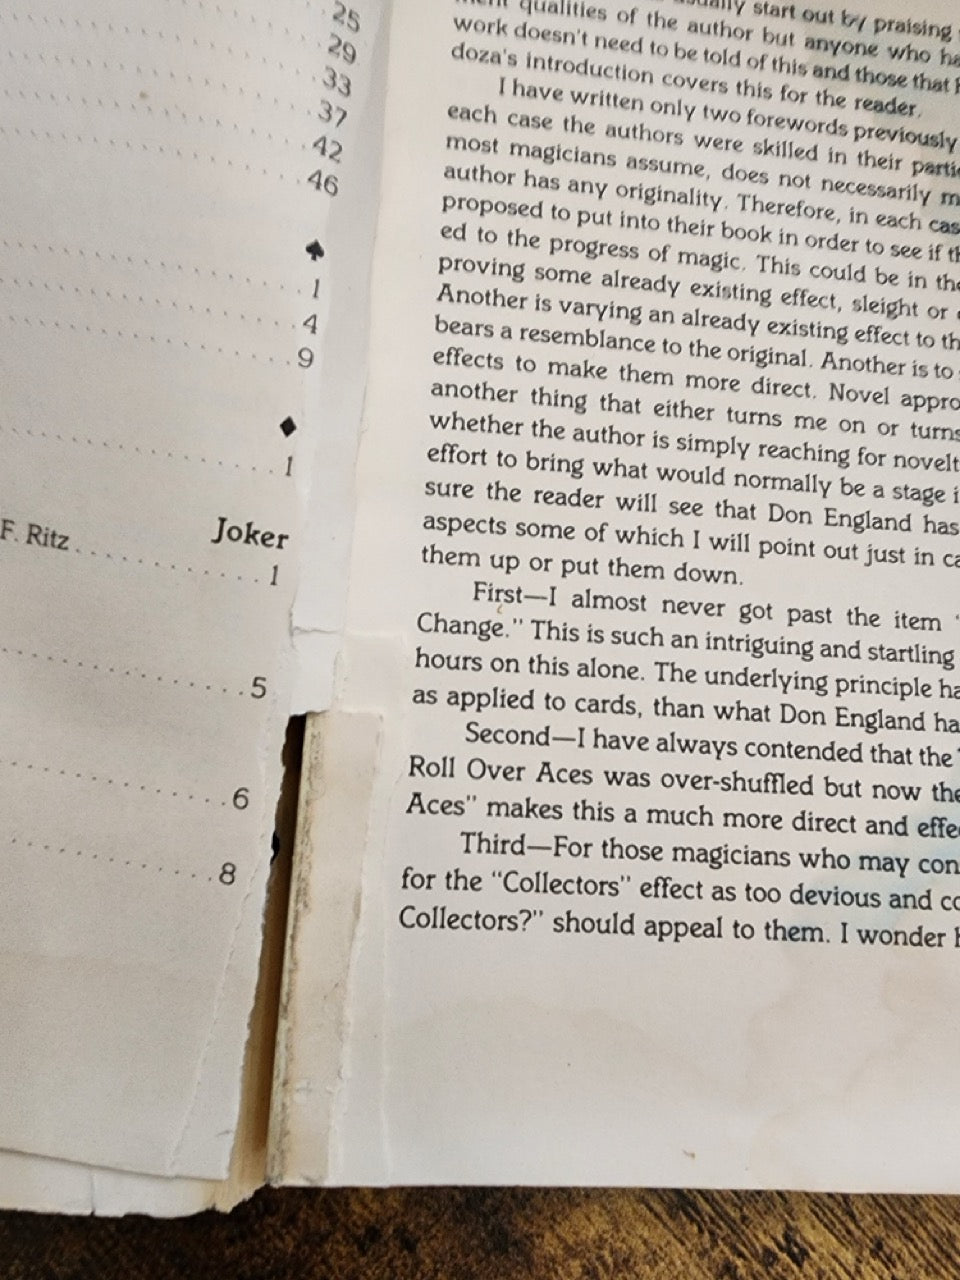 25
29
33
37
42
46
♠
1
4
9
♦
1
Joker
F. Ritz 1
5
6
8
usually start out by praising
qualities of the author but anyone who
work doesn't need to be told of this and those that
doza's introduction covers this for the reader.
I have written only two forewords previously
each case the authors were skilled in their
most magicians assume, does not necessarily
author has any originality. Therefore, in each
proposed to put into their book in order to see if
ed to the progress of magic. This could be in
proving some already existing effect, sleight or
Another is varying an already existing effect to
bears a resemblance to the original. Another is to
effects to make them more direct. Novel
another thing that either turns me on or turns
whether the author is simply reaching for
effort to bring what would normally be a stage
sure the reader will see that Don England has
aspects some of which I will point out just in
them up or put them down.
First—I almost never got past the item
Change." This is such an intriguing and startling
hours on this alone. The underlying principle
as applied to cards, than what Don England
Second—I have always contended that the
Roll Over Aces was over-shuffled but now
Aces" makes this a much more direct and
Third—For those magicians who may
for the "Collectors" effect as too devious and
Collectors?" should appeal to them. I wonder